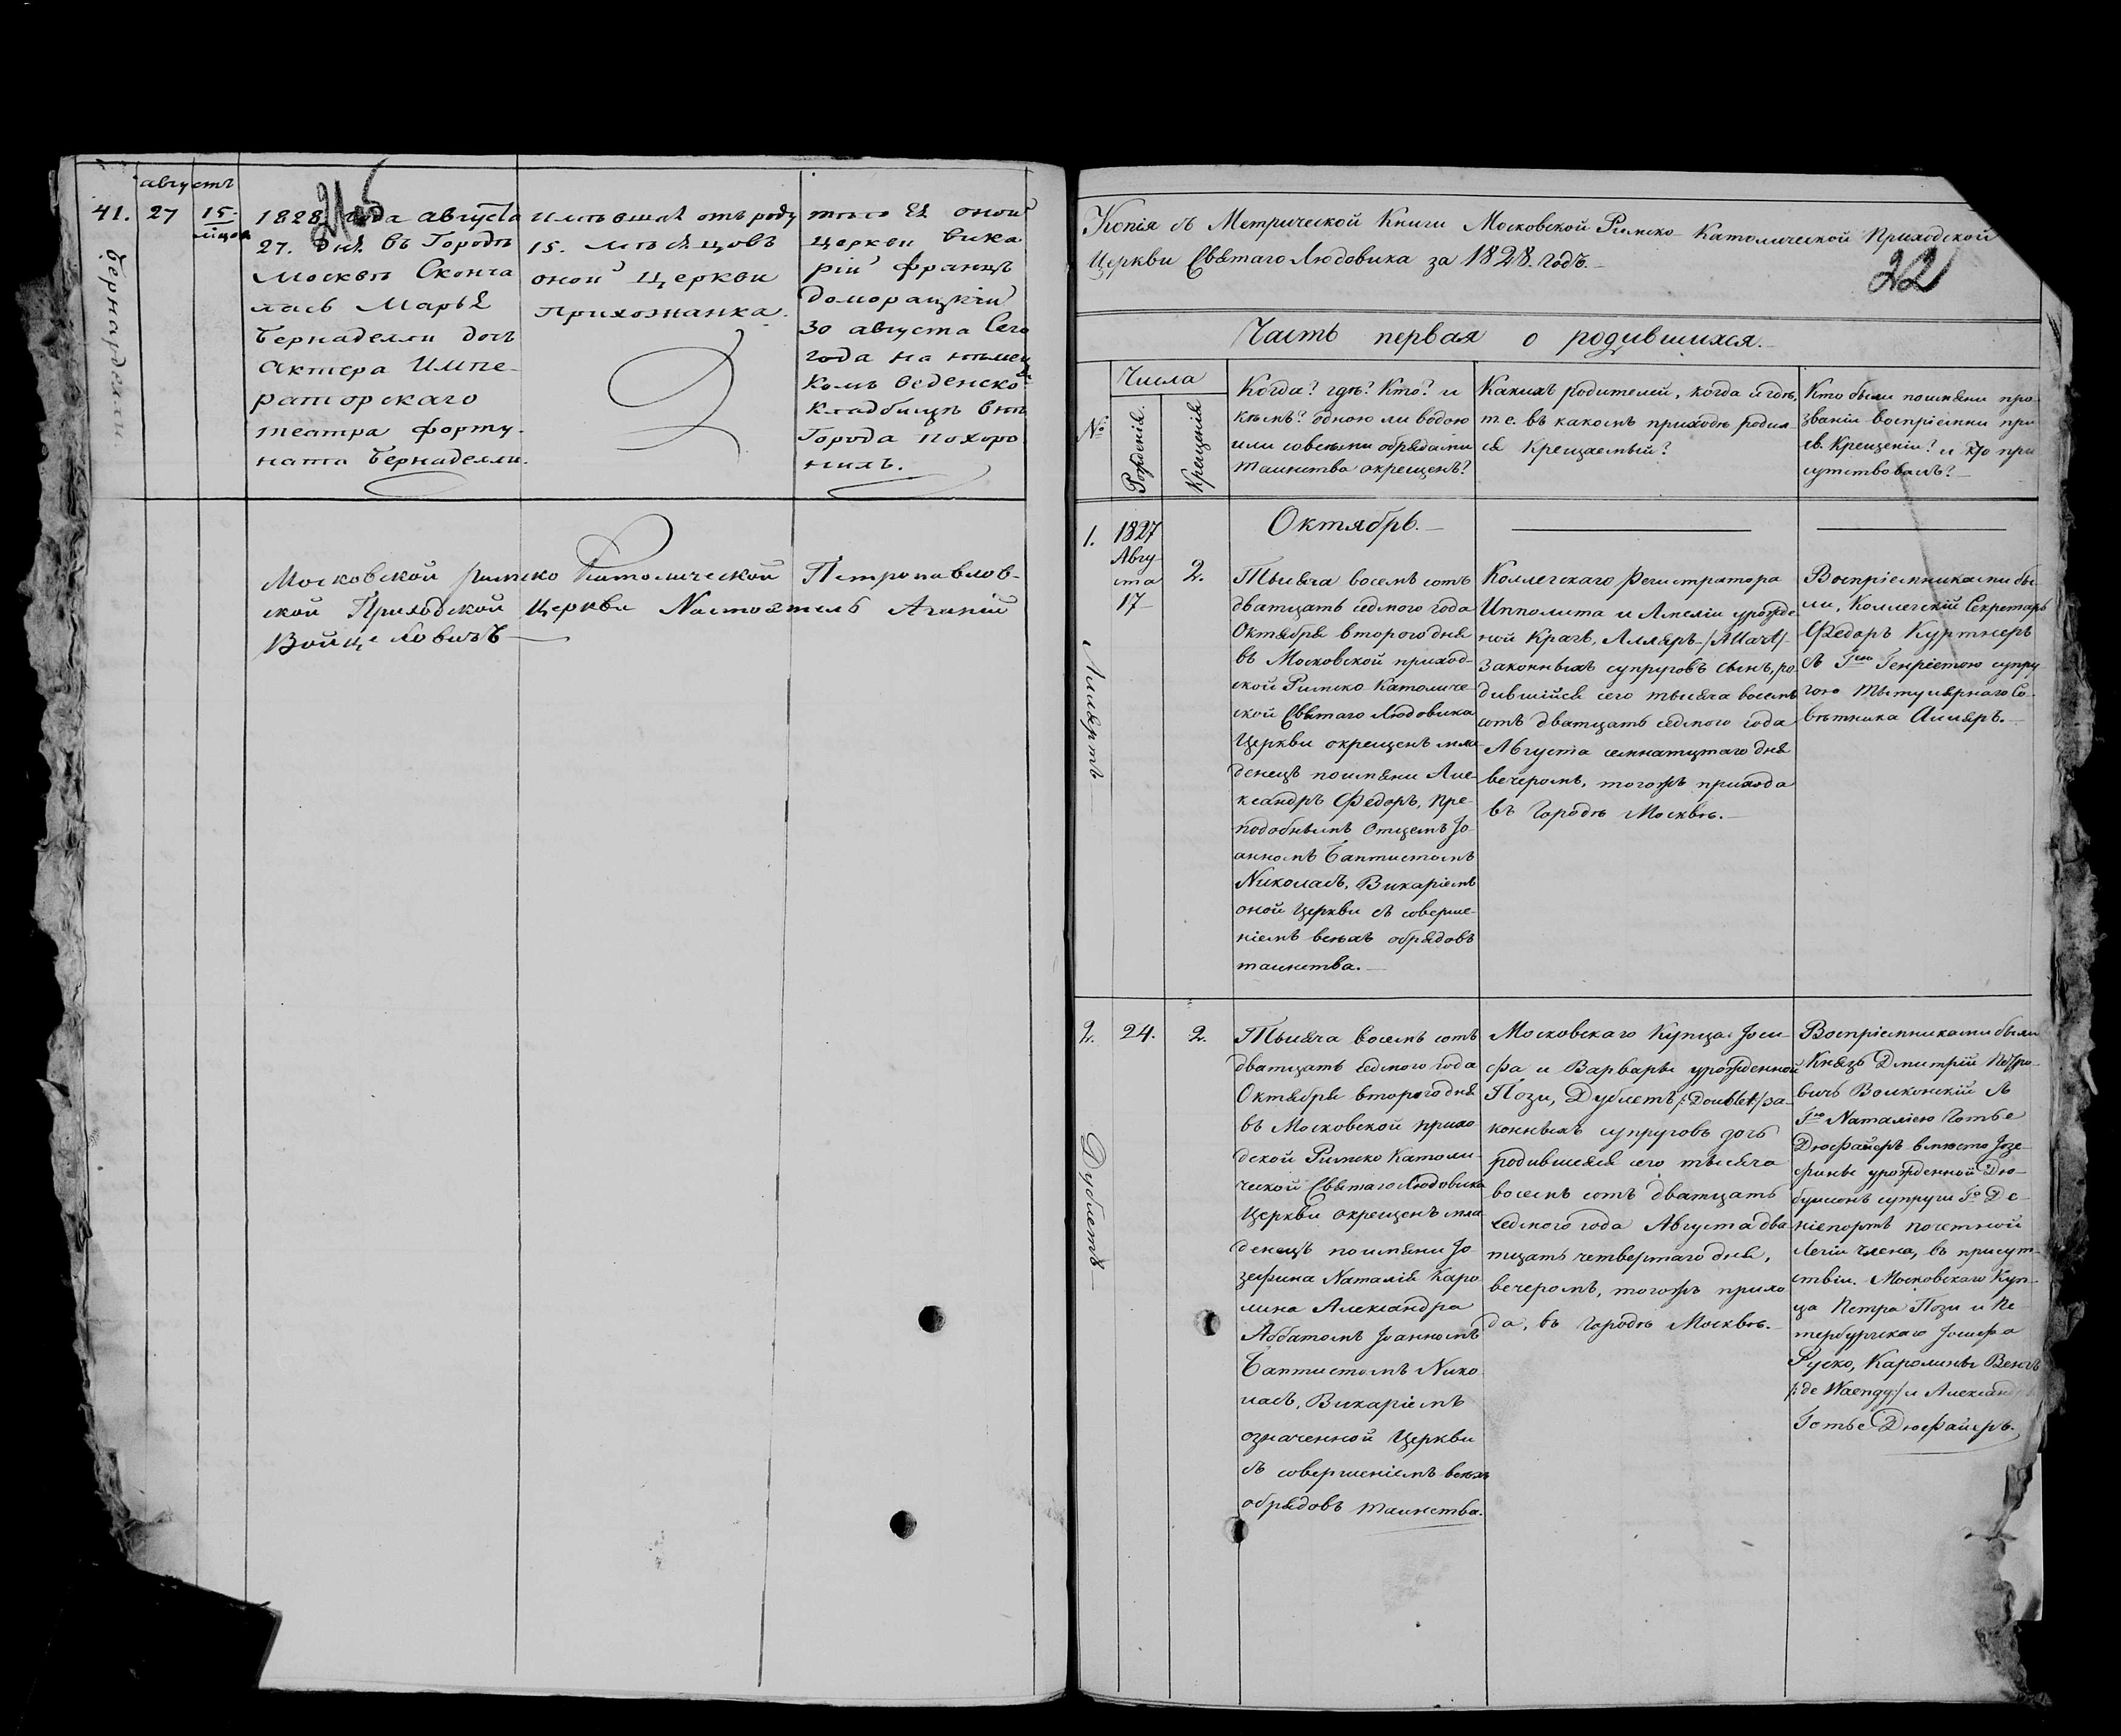 августъ
41.
27
15.
мѣцов
Бернарделли
21 об
1828 года августа
27. дня въ Городѣ
Москвѣ Сконча
лась Марья
Бернаделли дочь
Актера Импе-
раторскаго
театра Форту-
ната Бернаделли.
имѣвшая отъ роду
15. мѣсяцовъ
оной Церкви
прихожанка.
тѣло ея оной
церкви вика
рій Францъ
Доморацкій
30 августа Сего
года на нѣмец
комъ веденско
кладбищѣ внѣ
Города похоро
нилъ.
Московской римско Католической Петропавлов-
ской Приходской Церкви Настоятель Аганій
Войцеховичъ
Копія съ Метрической Книги Московской Римско Католической Приходской
Церкви Святаго Людовика за 1828. годъ.
22
Часть первая о родившихся.
№
Числа
Рожденія.
Крещенія
Когда? гдѣ? Кто? и
кѣмъ? одною ли водою
или совсѣми обрядами
таинства окрещенъ?
Какихъ родителей, когда и гдѣ,
т.е. въ какомъ приходѣ родил
ся Крещаемый?
Кто были поимѣни про
званіи воспріемни при
св. Крещеніи? и Кто при
сутствовалъ?
1.
1827
Авгу
ста
17
2.
Аллертъ
Октябрь.
Тысяча восемь сотъ
дватцать седмого года
Октября второго дня
въ Московской приход-
ской Римско Католиче-
ской Святаго Людовика
Церкви окрещенъ мла
денецъ поимяни Але-
ксандръ Федоръ, Пре-
подобнымъ Отцемъ Іо-
анномъ Баптистомъ
Николасъ, Викаріемъ
оной Церкви съ соверше-
ніемъ всѣхъ обрядовъ
таинства.
Коллегскаго Регистратора
Ипполита и Амеліи урожде-
ной Крагъ, Алляръ /Allart/
законныхъ супруговъ сынъ, ро
дившійся сего тысяча восемь
сотъ дватцать седмого года
Августа семнатцтаго дня
вечеромъ, тогожъ прихода
въ Городѣ Москвѣ.
Воспріемниками бы
ли, Коллегскій Секретарь
Федоръ Куртнеръ
съ Гжею Генріетою супру
гою Титулярнаго Со
вѣтника Алляръ.
2.
24.
2.
Дублетъ
Тысяча восемь сотъ
дватцать седмого года
Октября второго дня
въ Московской прихо
дской Римско Католи-
ческой Святаго Людовика
Церкви окрещенъ мла
денецъ поимяни Іо
зефина Наталія Каро
лина Александра
Аббатомъ Іоанномъ
Баптистомъ Нико
ласъ, Викаріемъ
означенной Церкви
съ совершеніемъ всѣхъ
обрядовъ таинства.
Московскаго Купца Іоси-
фа и Варвары урожденной
Пози, Дублетъ /:Doublet:/ за-
конныхъ супруговъ дочь
родившаяся сего тысяча
восемь сотъ дватцать
седмого года Августа два
тцать четвертаго дня,
вечеромъ, тогожъ прихо
да, въ Городѣ Москвѣ.
Воспріемниками были
Князь Дмитрій Петро-
вичъ Волконскій съ
Гжею Наталіею Готье
Дюфайеръ вмѣсто Іозе-
фины урожденной Дю-
буисонъ супруги Гна Де-
ніепортъ почетной
Легіи члена, въ присут-
ствіи. Московскаго Куп-
ца Петра Пози и Пе-
тербургскаго Іосифа
Руско, Каролины Венгъ
/:de Waengg:/ и Александры
Готье Дюфайеръ.